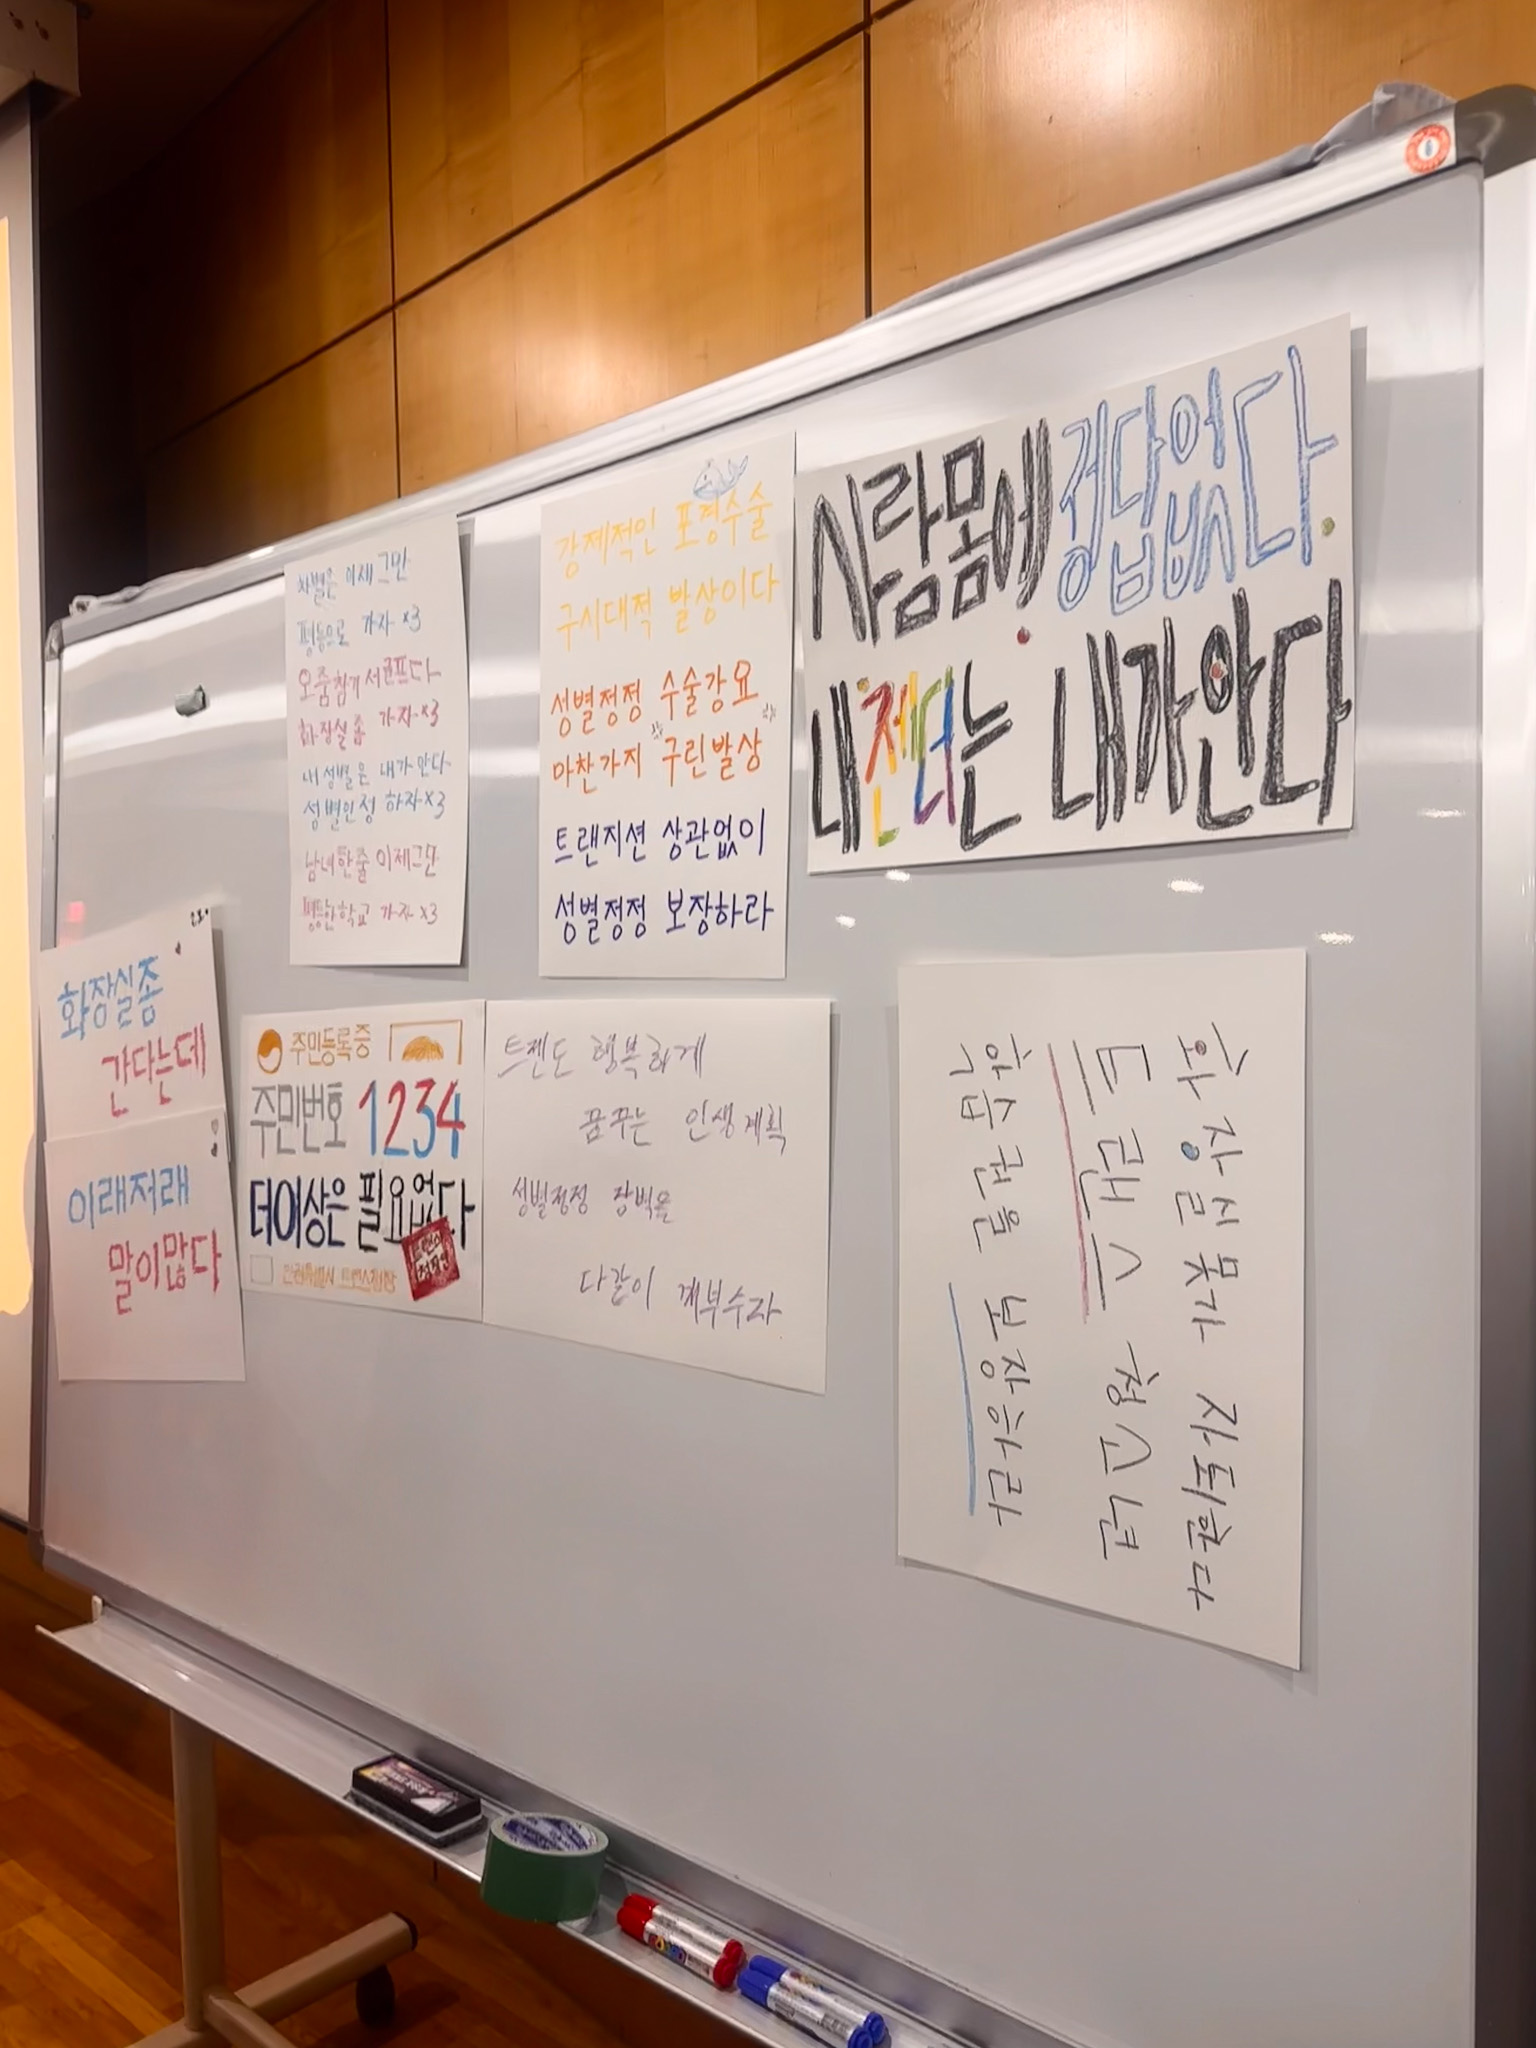 차별은 이제 그만
평등으로 가자 x3
오줌참기 서글프다
화장실 좀 가자 x3
내 성별은 내가 안다
성별인정 하자 x3
남녀한줄 이제그만
평등한학교 가자 x3
강제적인 포경수술
구시대적 발상이다
성별정정 수술강요
마찬가지 구린발상
트랜지션 상관없이
성별정정 보장하라
사람몸에 정답없다
내 젠더는 내가 안다
화장실좀
간다는데
이래저래
말이많다
주민등록증
주민번호 1234
더이상은 필요없다
트젠도 행복하게
꿈꾸는 인생계획
성별정정 장벽을
다같이 깨부수자
화장실 못가 자퇴한다
트랜스 청소년
학습권을 보장하라